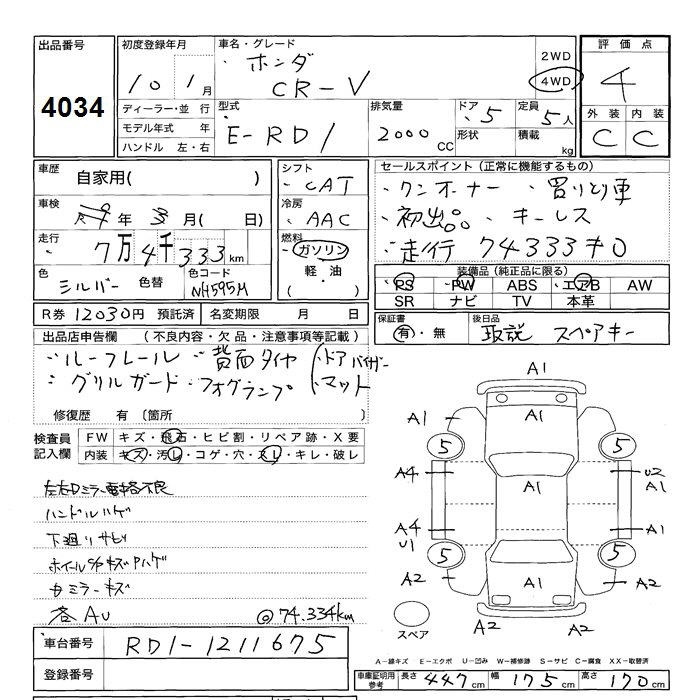 出品番号
4034
初度登録年月
10 1月
車名・グレード
ホンダ
CR-V
2WD
4WD
評価点
4
外装 内装
C C
ディーラー・並 行
モデル年式 年
ハンドル 左・右
型式
E-RD1
排気量
2000 CC
ドア 5
形状
定員 5人
積載 kg
車歴
自家用( )
車検
年 3月( 日)
走行
7万4千333km
色
シルバー
色替
色コード
NH595M
シフト
CAT
冷房
AAC
燃料
ガソリン
軽・油
( )
セールスポイント(正常に機能するもの)
・ワンオーナー ・買いとり車
・初出品 ・キーレス
・走行 74333キロ
装備品(純正品に限る)
PS PW ABS エアB AW
SR ナビ TV 本革
R券 12030円 預託済
名変期限 月 日
保証書
有・無
後日品
取説 スペアキー
出品店申告欄 (不良内容・欠品・注意事項等記載)
・ルーフレール ・背面タイヤ
・グリルガード・フォグランプ
・ドアバイザー
・マット
修復歴 有〔箇所 〕
検査員
記入欄
FW キズ・飛石・ヒビ割・リペア跡・X要
内装 キズ・汚レ・コゲ・穴・スレ・キレ・破レ
左右Dミラー電格不良
ハンドルハゲ
下廻りサビ
ホイールC/Pキズハゲ
カミラーキズ
各AU
◎74.334km
A1
A1 A1
5 5
A4 A1 U2
A1
A4 A1
U1
5 5
A2 A1 A2
スペア
A2 A2
A-線キズ E-エクボ U-凹み W-補修跡 S-サビ C-腐食 XX-交換済
車台番号
RD1-1211675
登録番号
車庫証明用
参考
長さ 447cm 幅 175cm 高さ 170cm